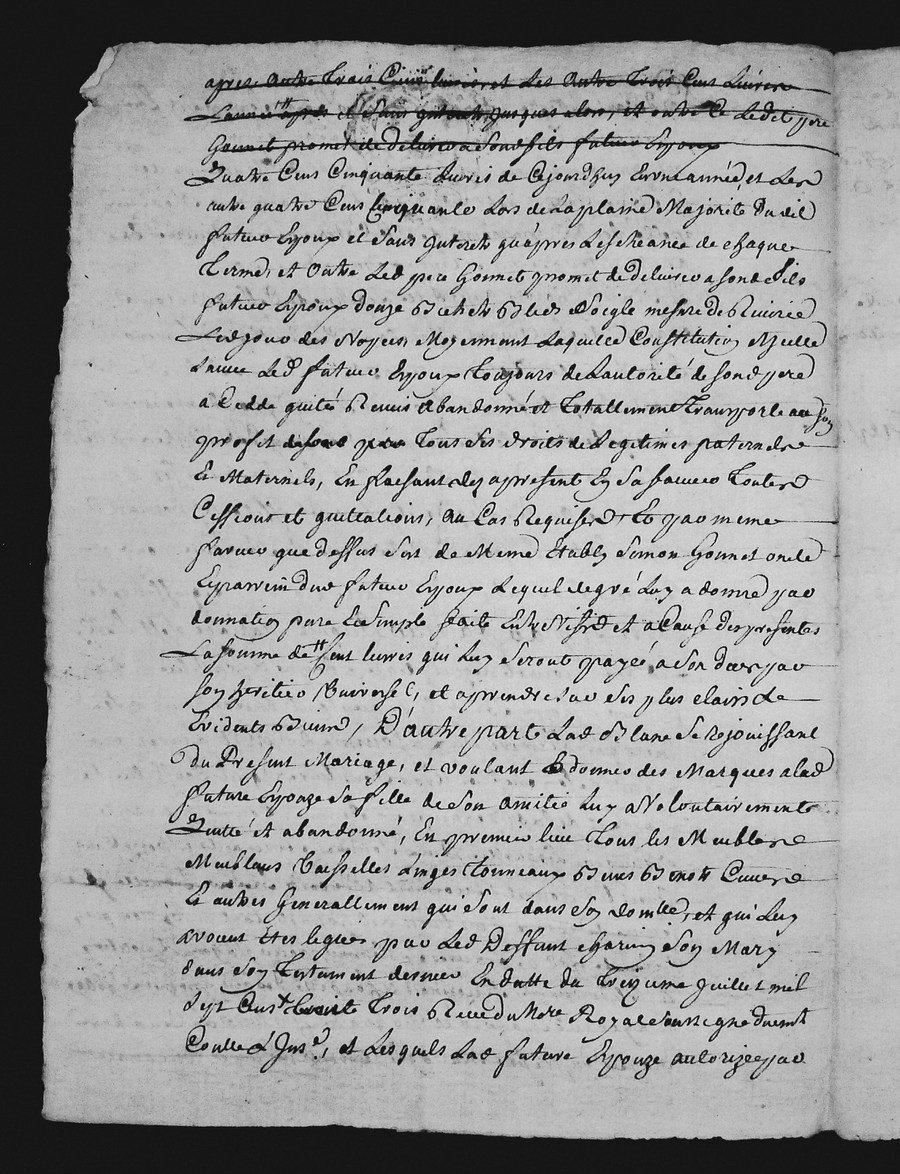 apres autre Trois Cens livres, et Les autre Trois Cens Livres
L'année apres et Sans jusques alors, et outre Ce Ledit pere
Gonnet promet de delivrer a Sond fils futur Epoux
Quatre Cens Cinquante Livres de Cejourdhuy En un année, et Les
autre quatre Cens Cinquante Lors de La plaine Majorité Dudit
futur Epoux et Sans Interets qu'apres Lescheance de chaque
Terme, et Outre Led pere Gonnet promet de delivrer a sond fils
futur Epoux douze Bichets Bled Soigle mesure de
Led jour des Noces, Moyennant Laquelle Constitution Icelle
Led futur Epoux Toujours de L'autorité de sond pere
a Cedde quité Remis abandonné et Totallement Transporte au
profit de sond pere Tous Ses droits de Legitimes paternels
Et Maternels, En faisant des apresent En Sa faveur Toutes
Cessions et quittations, au Cas Requises, Et par meme
faveur que dessus Sest de Meme Etably Simon Gonnet oncle
Eparrein dud futur Epoux Lequel de gré Luy a donné par
donnation pure Et Simple faite Entre Vifs et a Cause des presentes
La somme de Cent livres qui Luy Seront payée a Son par
Son heritier Universel, et a prendre sur Ses plus clairs &
Evidents Biens, D'autre part Lad Blanc Se rejouissant
Du Present Mariage, et voulant donner des Marques a lad
future Epouze Sa fille de Son amitié Luy a Volontairement
Quitté et abandonné, En premier lieu Tous les Meubles
Meublans Vaisselles Linges Tonneaux Cuves
Et autres Generallement qui Sont dans Son domlle, et qui Luy
avoient Etes legués par Led Deffunt Son Mary
dans Son Testament dernier En datte du Treizieme Juillet mil
Sept Cens Trente Trois Receu du Nore Royal Soussigné duemt
Conllé & Insé, et Lesquels Lad future Epouze autorizée par